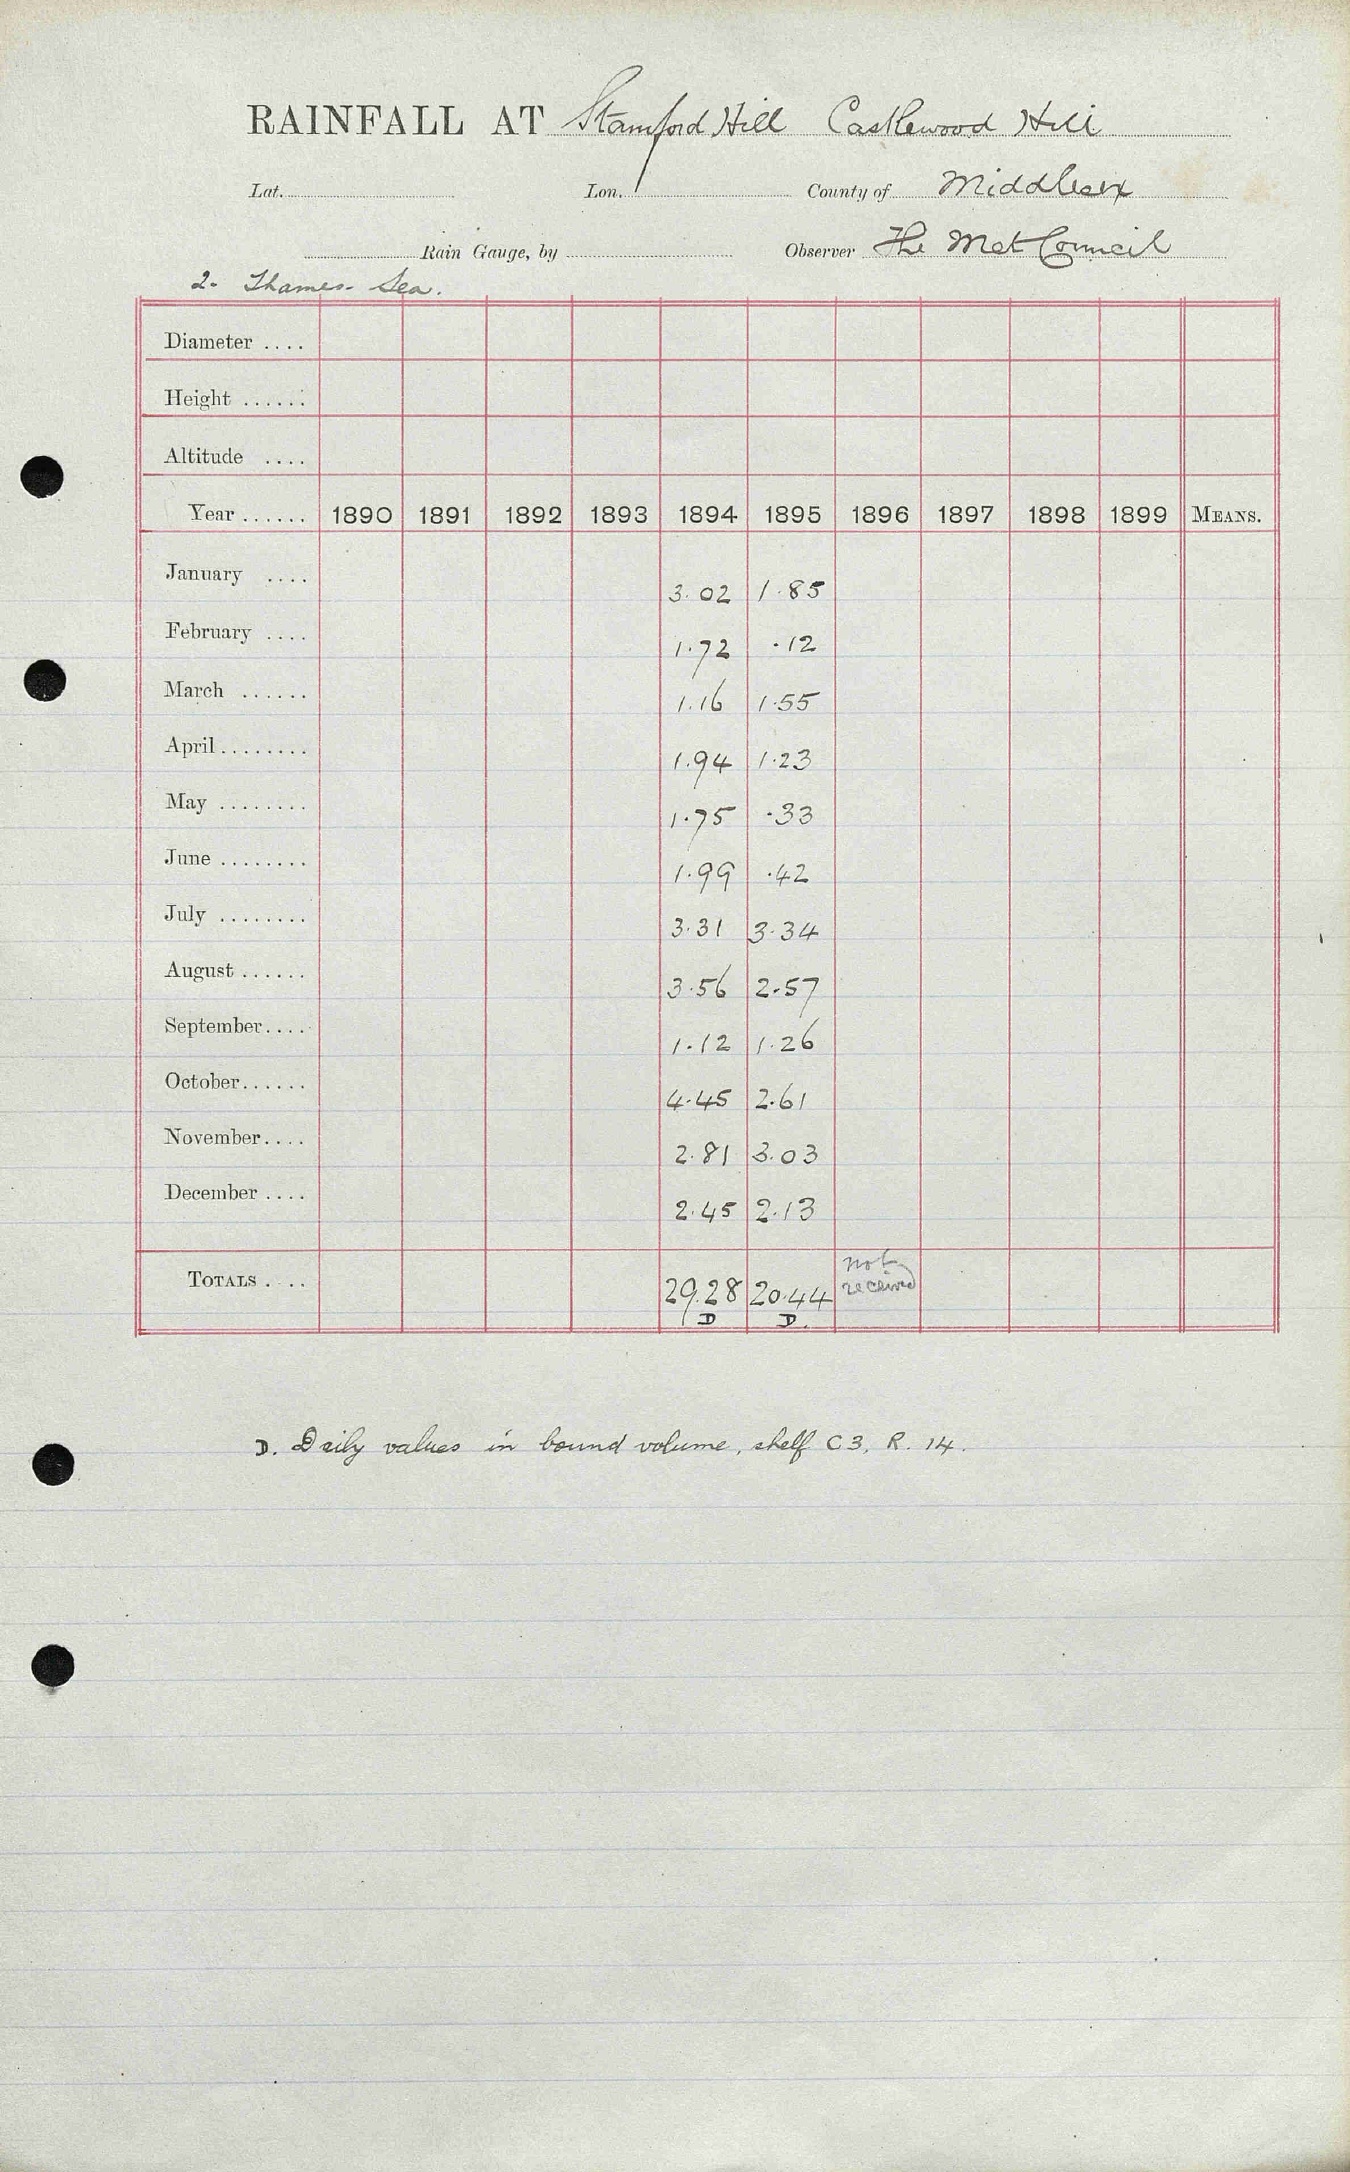 RAINFALL AT Stamford Hill Castlewood Hill
Lat. Lon. County of Middlesex
Rain Gauge, by Observer The Met Council
2. Thames. Sea.
Diameter ....
Height ......
Altitude ....
Year ...... 1890 1891 1892 1893 1894 1895 1896 1897 1898 1899 MEANS.
January .... 3.02 1.85
February .... 1.72 .12
March ...... 1.16 1.55
April ........ 1.94 1.23
May ........ 1.75 .33
June ........ 1.99 .42
July ........ 3.31 3.34
August ...... 3.56 2.57
September .... 1.12 1.26
October ...... 4.45 2.61
November .... 2.81 3.03
December .... 2.45 2.13
TOTALS .... 29.28 20.44 not received
D D.
D. Daily values in bound volume, shelf C3, R. 14.